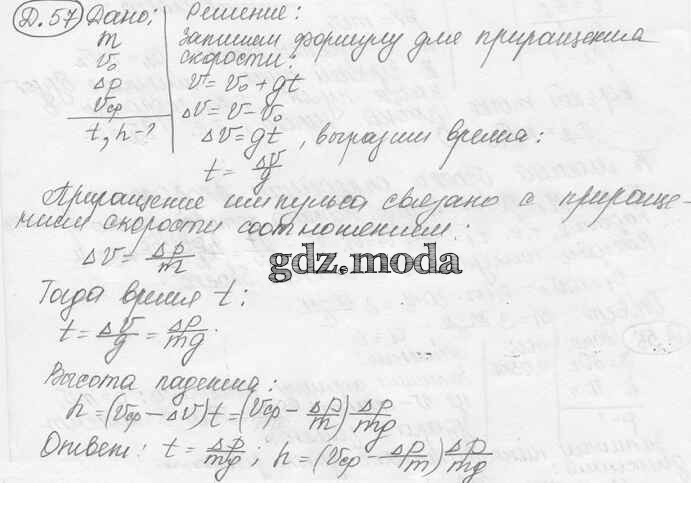 Д.57 Дано: Решение:
m Запишем формулу для приращения
v₀ скорости:
Δp v = v₀ + gt
vср Δv = v - v₀
t, h - ? Δv = gt , выразим время:
t = Δv/g
Приращение импульса связано с прираще-
нием скорости соотношением:
Δv = Δp/m
gdz.moda
Тогда время t:
t = Δv/g = Δp/mg.
Высота падения:
h = (vср - Δv)t = (vср - Δp/m) Δp/mg
Ответ: t = Δp/mg ; h = (vср - Δp/m) Δp/mg